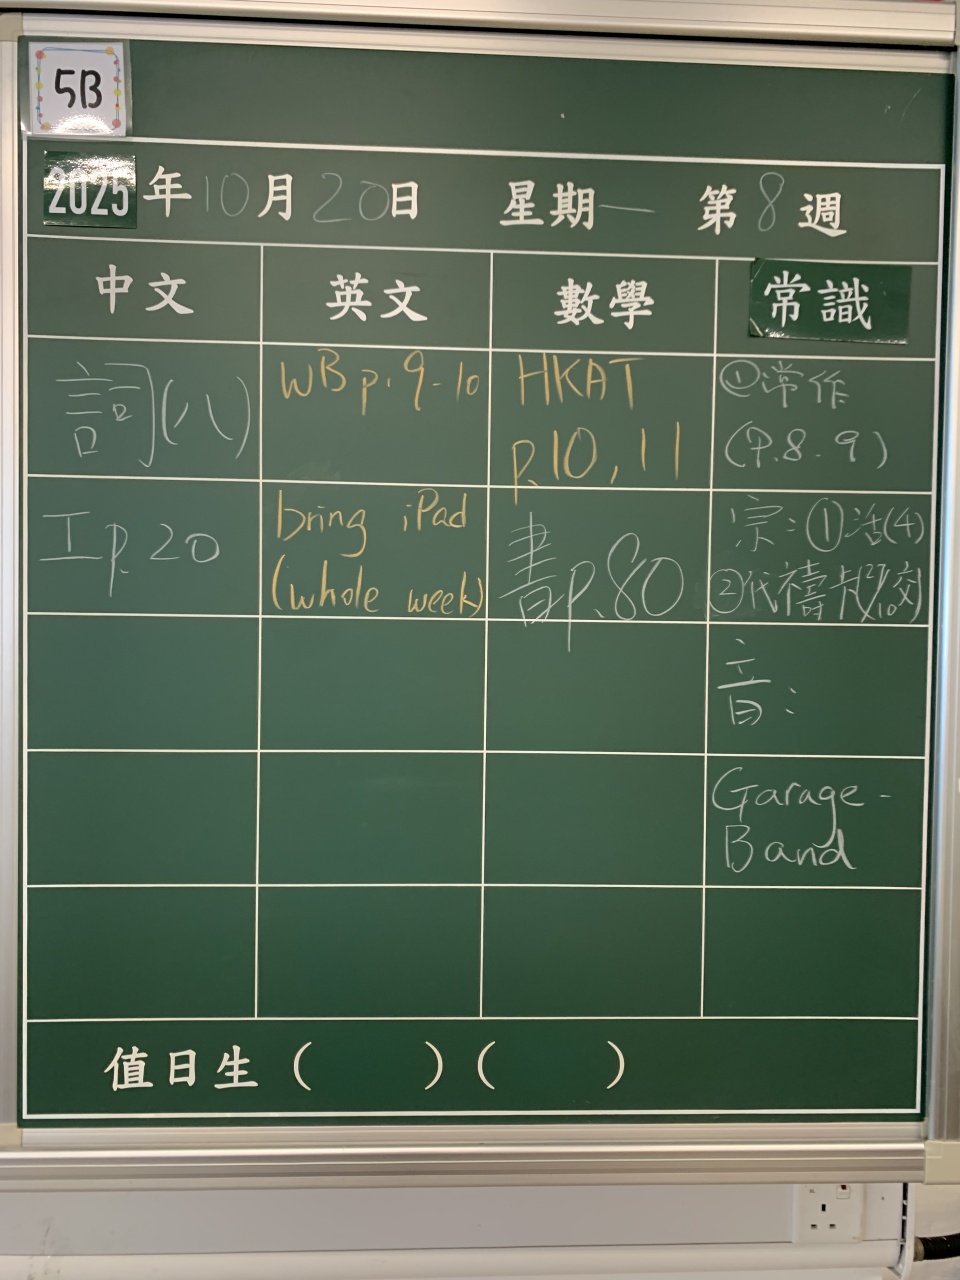 5B
2025年10月20日 星期一 第8週
中文 英文 數學 常識
詞(八)
WB p.9-10
HKAT
p.10,11
①常作
(P.8-9)
工p.20
bring iPad
(whole week)
書p.80
宗:①活(4)
②代禱卡(27/10交)
音:
Garage-
Band
值日生( )( )